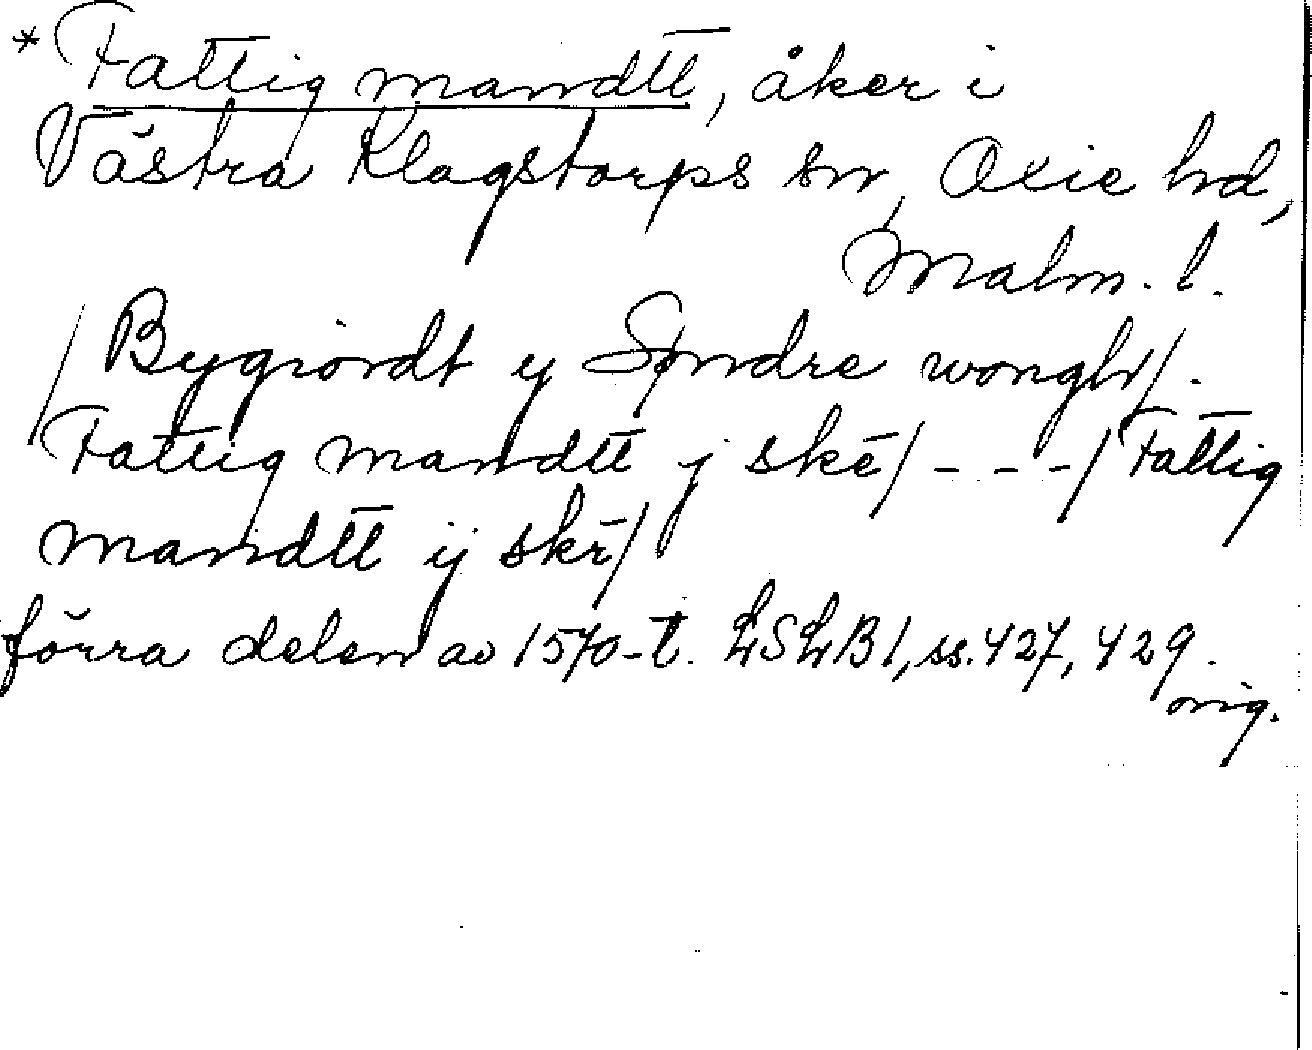 *Fattig mandtt, åker i
Västra Klagstorps sn, Oxie hd,
Malm. l.
/Bygiordt y Søndre wongh/.
Fattig mandtt j skē/ - - - / Fattig
mandtt ij skē/
förra delen av 1570-t. LSLB 1, ss. 427, 429.
orig.